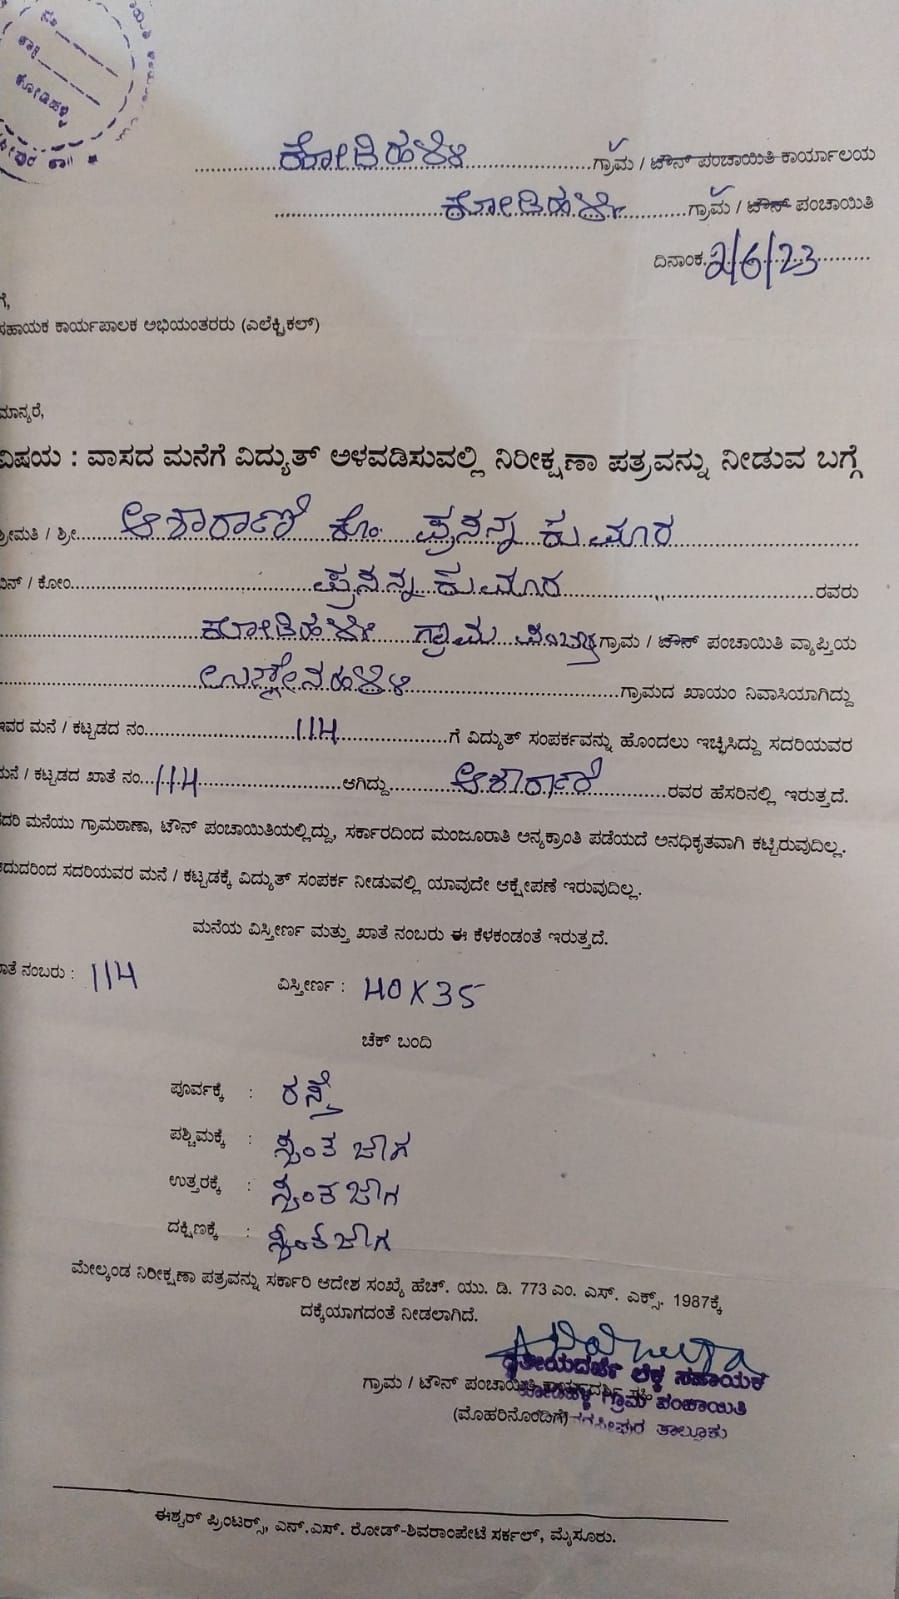 ಕೋಡಿಹಳ್ಳಿ
ಕೋಡಿಹಳ್ಳಿ ಗ್ರಾಮ / ಟೌನ್ ಪಂಚಾಯಿತಿ ಕಾರ್ಯಾಲಯ
ಕೋಡಿಹಳ್ಳಿ ಗ್ರಾಮ / ಟೌನ್ ಪಂಚಾಯಿತಿ
ದಿನಾಂಕ 2/6/23
ಗೆ,
ಸಹಾಯಕ ಕಾರ್ಯಪಾಲಕ ಅಭಿಯಂತರರು (ಎಲೆಕ್ಟ್ರಿಕಲ್)
ಮಾನ್ಯರೆ,
ವಿಷಯ : ವಾಸದ ಮನೆಗೆ ವಿದ್ಯುತ್ ಅಳವಡಿಸುವಲ್ಲಿ ನಿರೀಕ್ಷಣಾ ಪತ್ರವನ್ನು ನೀಡುವ ಬಗ್ಗೆ
ಶ್ರೀಮತಿ / ಶ್ರೀ ಆಶಾರಾಣಿ ಕೋಂ ಪ್ರಸನ್ನ ಕುಮಾರ
ಬಿನ್ / ಕೋಂ ಪ್ರಸನ್ನ ಕುಮಾರ ರವರು
ಕೋಡಿಹಳ್ಳಿ ಗ್ರಾಮ ಗ್ರಾಮ / ಟೌನ್ ಪಂಚಾಯಿತಿ ವ್ಯಾಪ್ತಿಯ
ಗ್ರಾಮದ ಖಾಯಂ ನಿವಾಸಿಯಾಗಿದ್ದು
ಇವರ ಮನೆ / ಕಟ್ಟಡದ ನಂ 114 ಗೆ ವಿದ್ಯುತ್ ಸಂಪರ್ಕವನ್ನು ಹೊಂದಲು ಇಚ್ಛಿಸಿದ್ದು ಸದರಿಯವರ
ಮನೆ / ಕಟ್ಟಡದ ಖಾತೆ ನಂ 114 ಆಗಿದ್ದು ಆಶಾರಾಣಿ ರವರ ಹೆಸರಿನಲ್ಲಿ ಇರುತ್ತದೆ.
ಸದರಿ ಮನೆಯು ಗ್ರಾಮಠಾಣಾ, ಟೌನ್ ಪಂಚಾಯಿತಿಯಲ್ಲಿದ್ದು, ಸರ್ಕಾರದಿಂದ ಮಂಜೂರಾತಿ ಅನ್ಯಕ್ರಾಂತಿ ಪಡೆಯದೆ ಅನಧಿಕೃತವಾಗಿ ಕಟ್ಟಿರುವುದಿಲ್ಲ.
ಆದುದರಿಂದ ಸದರಿಯವರ ಮನೆ / ಕಟ್ಟಡಕ್ಕೆ ವಿದ್ಯುತ್ ಸಂಪರ್ಕ ನೀಡುವಲ್ಲಿ ಯಾವುದೇ ಆಕ್ಷೇಪಣೆ ಇರುವುದಿಲ್ಲ.
ಮನೆಯ ವಿಸ್ತೀರ್ಣ ಮತ್ತು ಖಾತೆ ನಂಬರು ಈ ಕೆಳಕಂಡಂತೆ ಇರುತ್ತದೆ.
ಖಾತೆ ನಂಬರು : 114 ವಿಸ್ತೀರ್ಣ : 40 X 35
ಚೆಕ್ ಬಂದಿ
ಪೂರ್ವಕ್ಕೆ : ರಸ್ತೆ
ಪಶ್ಚಿಮಕ್ಕೆ : ಸ್ವಂತ ಜಾಗ
ಉತ್ತರಕ್ಕೆ : ಸ್ವಂತ ಜಾಗ
ದಕ್ಷಿಣಕ್ಕೆ : ಸ್ವಂತ ಜಾಗ
ಮೇಲ್ಕಂಡ ನಿರೀಕ್ಷಣಾ ಪತ್ರವನ್ನು ಸರ್ಕಾರಿ ಆದೇಶ ಸಂಖ್ಯೆ ಹೆಚ್. ಯು. ಡಿ. 773 ಎಂ. ಎಸ್. ಎಕ್ಸ್. 1987ಕ್ಕೆ
ದಕ್ಕೆಯಾಗದಂತೆ ನೀಡಲಾಗಿದೆ.
ದ್ವಿತೀಯದರ್ಜೆ ಲೆಕ್ಕ ಸಹಾಯಕ
ಗ್ರಾಮ / ಟೌನ್ ಪಂಚಾಯಿತಿ ಕಾರ್ಯದರ್ಶಿ ಸಹಿ
ಕೋಡಿಹಳ್ಳಿ ಗ್ರಾಮ ಪಂಚಾಯಿತಿ
(ಮೊಹರಿನೊಂದಿಗೆ)
ತಾಲ್ಲೂಕು
ಈಶ್ವರ್ ಪ್ರಿಂಟರ್‍ಸ್, ಎನ್.ಎಸ್. ರೋಡ್-ಶಿವರಾಂಪೇಟೆ ಸರ್ಕಲ್, ಮೈಸೂರು.